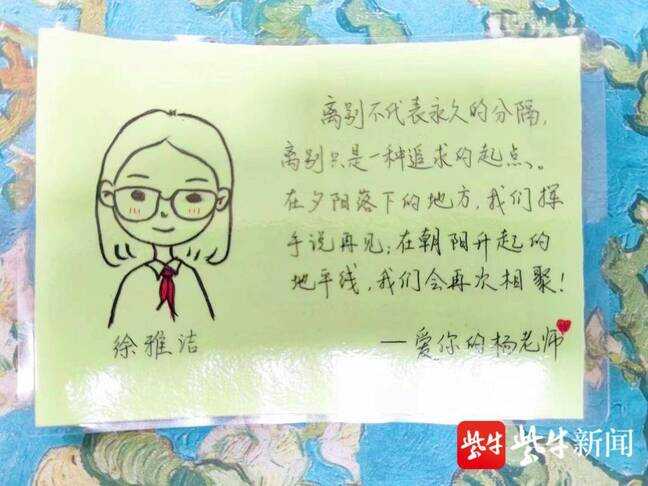 离别不代表永久的分隔,
离别只是一种追求的起点。
在夕阳落下的地方,我们挥
手说再见;在朝阳升起的
地平线,我们会再次相聚!
徐雅洁
—爱你的杨老师
紫牛 紫牛新闻